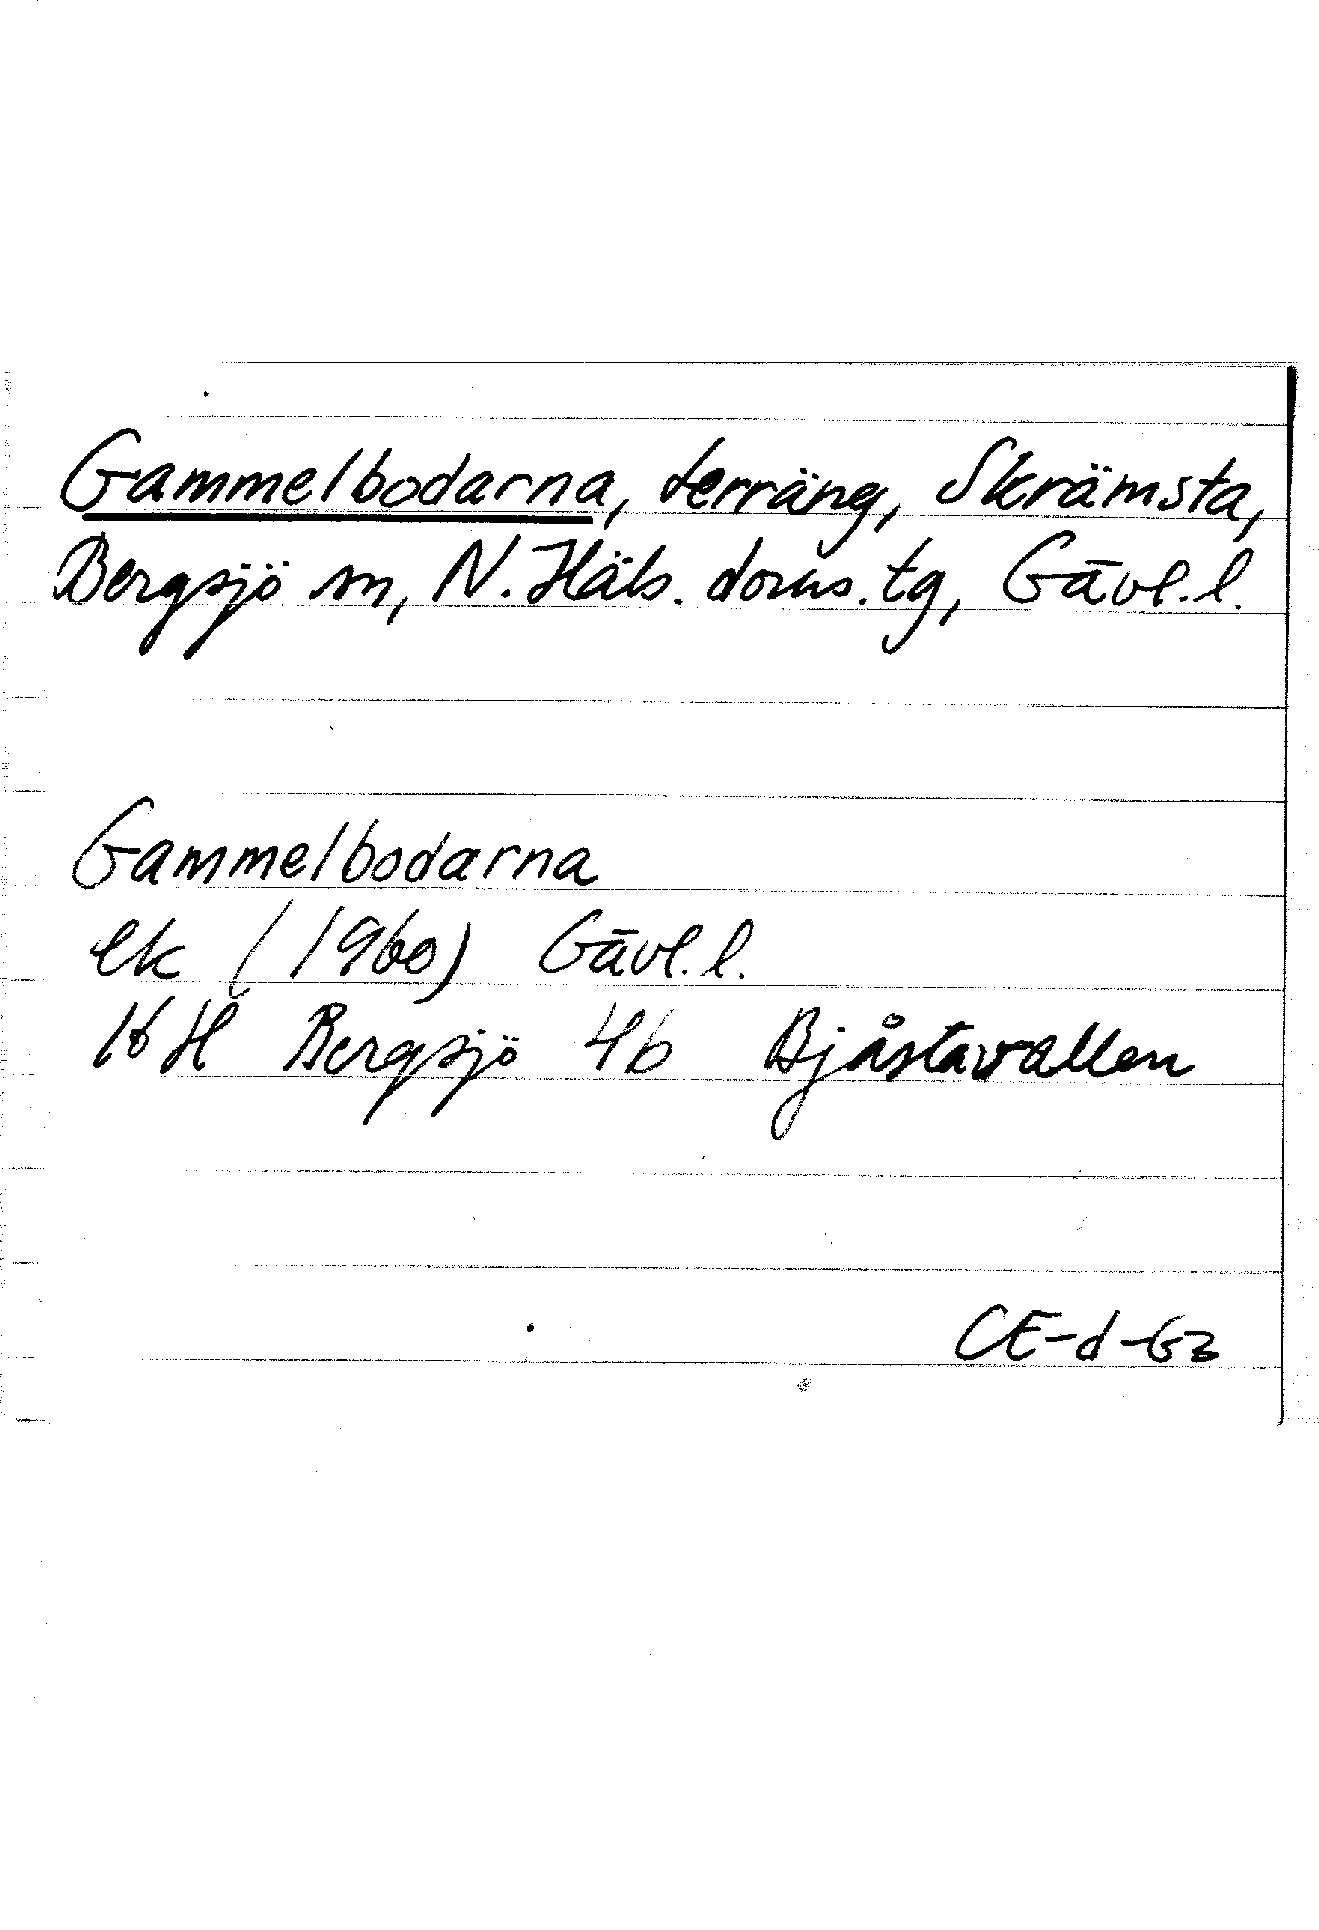 Gammelbodarna, terräng, Skrämsta,
Bergsjö sn, N. Häls. doms. tg, Gävl. l.
Gammelbodarna
ek (1960) Gävl. l.
16 H Bergsjö 4b Bjåstavallen
CE-d-63